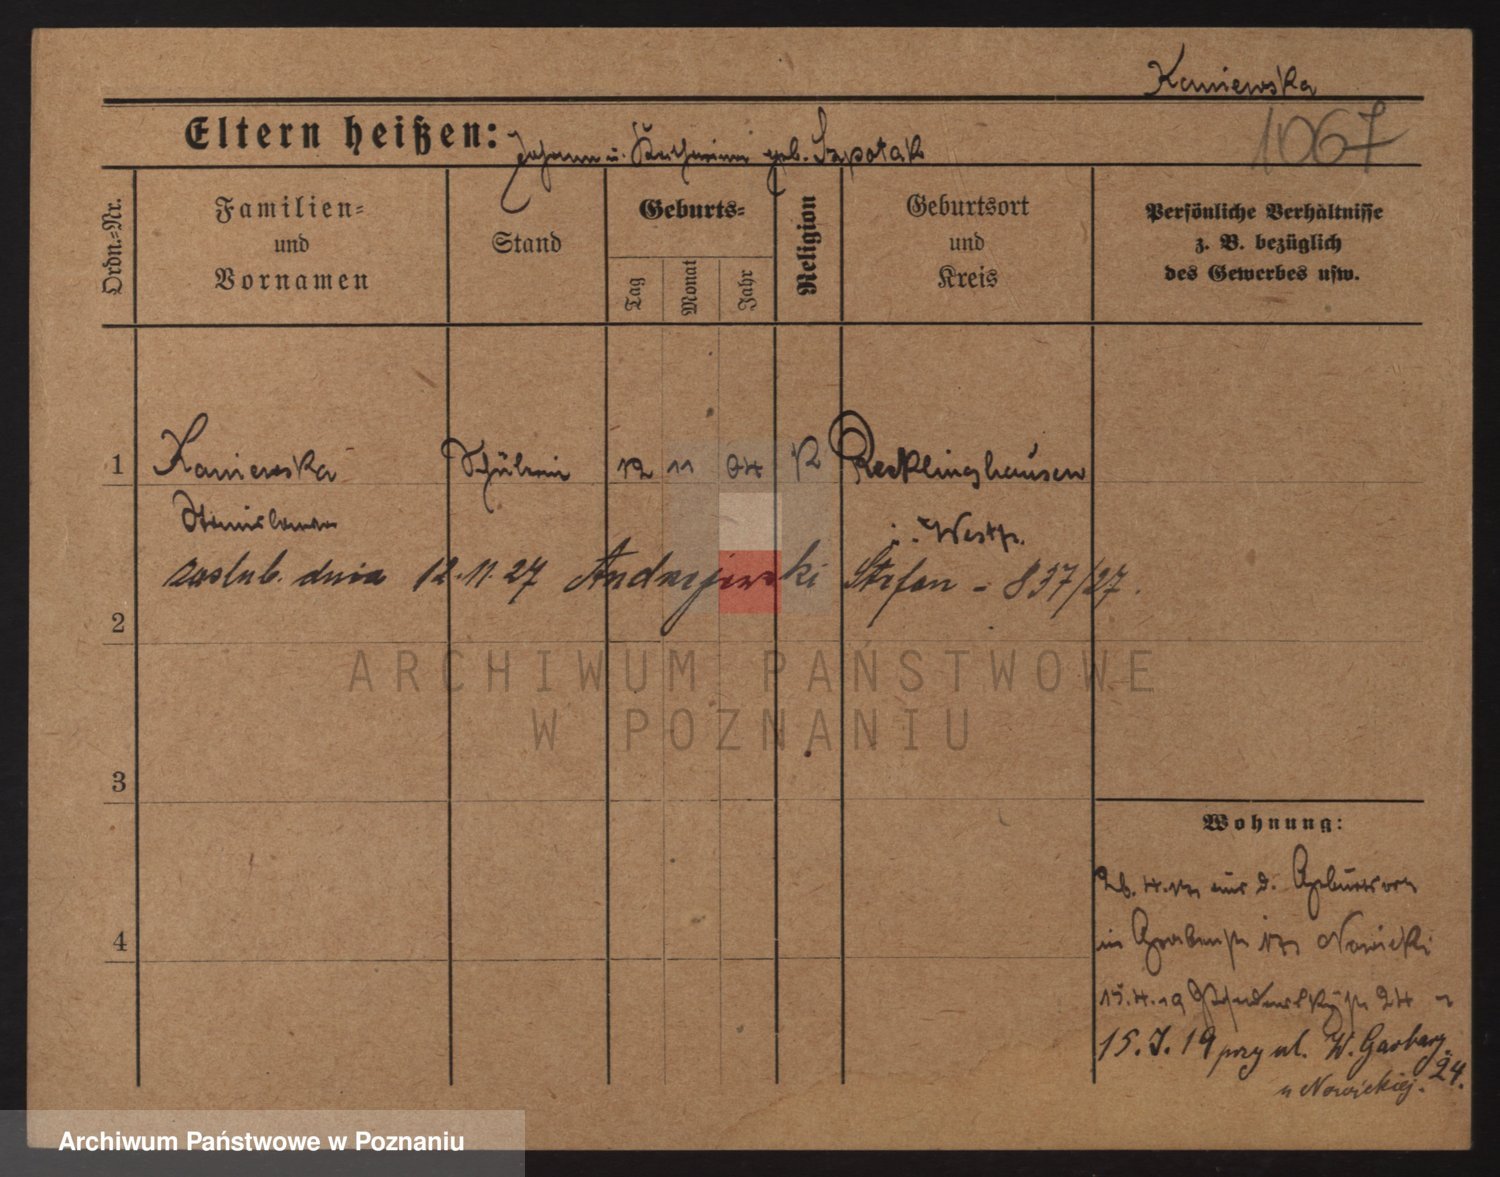 Kaniewska
1067
Eltern heißen: Johann u. Katharina geb. Szpotak
Ordn.=Nr.
Familien=
und
Vornamen
Stand
Geburts=
Tag
Monat
Jahr
Religion
Geburtsort
und
Kreis
Persönliche Verhältnisse
z. B. bezüglich
des Gewerbes usw.
1 Kaniewska Schülerin 12 11 04 K Recklinghausen
Stanislawa i. Westf.
zaślub. dnia 12.11.27 Andrzejewski Stefan - 837/27.
2
ARCHIWUM PAŃSTWOWE
W POZNANIU
3
Wohnung:
aus d. Geburtsort
4
in Nowicki
15.4.19 24
15.7.19 przy ul. W. Garbary 24.
u Nowickiej.
Archiwum Państwowe w Poznaniu